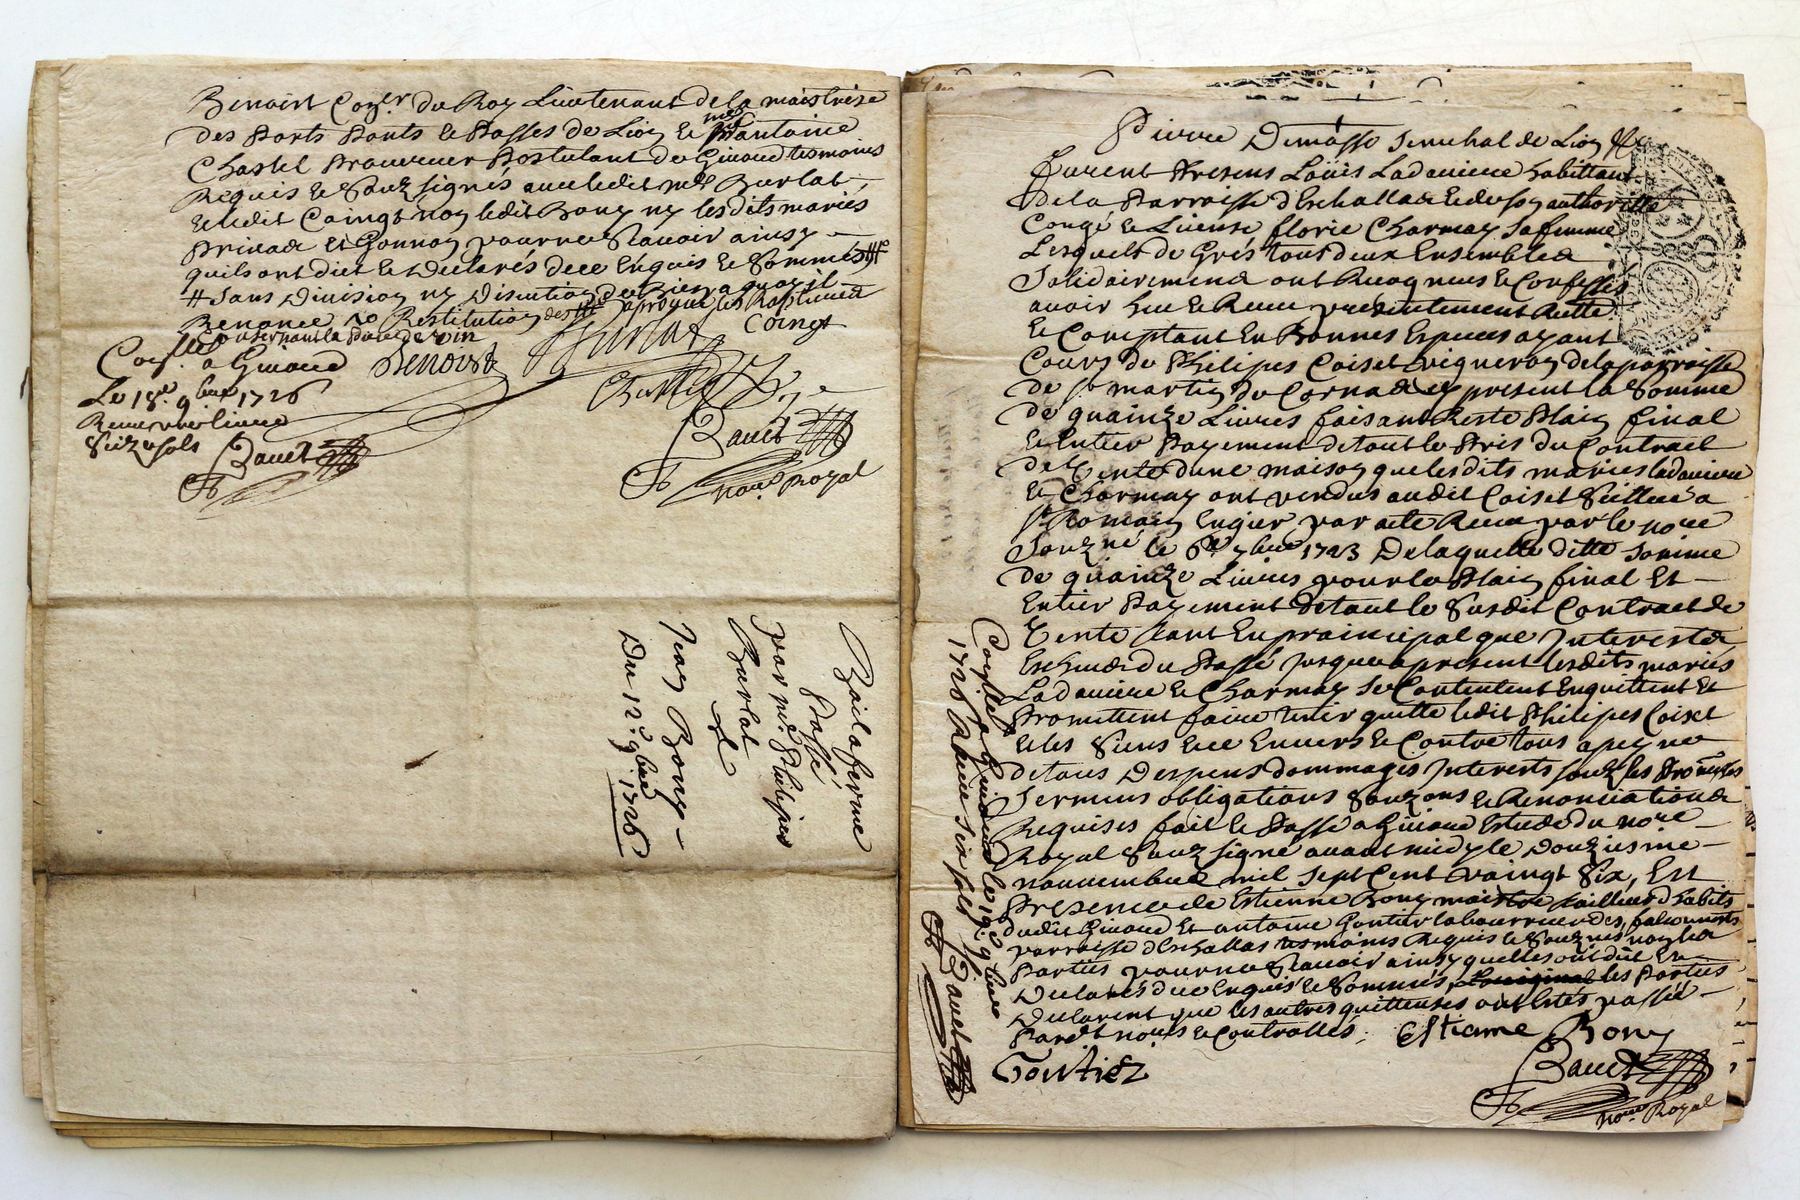 Benoist Cog.er du Roy Lieutenant de la maistrise
des Ports Ponts & Passes de Lion & me antoine
Chastel Procureur Postulant de Givord tesmoins
Requis & Souz signés avec ledit me Burlat
et ledit Coingt non ledit Bony ny les dits mariés
et Gonnon pour ne scavoir ainsy
quils ont dict & declarés de ce Enquis & Sommés
# Sans Division ny Discution de Bien a quoy il
Renonce Restitution aprouvé
concernant la
Con.llé a Givord Benoist Burlat Coingt
Le 18e 9bre 1726 Chastel
Receu une livre
seize sols
Bauet Bauet
no.re Royal
Bail a ferme
Passé
par me Philipes
Burlat
a
Jean Bony
Du 12e 9bre 1726
Pierre Demasso Senechal de Lion &c
furent Presens Loüis Ladaviere habittant
de la Parroisse d'Echallas & de son authorité
Congé & License florie Charmay sa femme
Lesquels de Grés tous deux Ensemble &
Solidairement ont Recogneus & Confessés
avoir heu & Receu presentement
& Comptant En Bonnes Especes ayant
Cours de Philipes Coiset vigneron de la parroisse
de st martin de Cornas icy present la Somme
de quainze Livres faisant Reste Plain final
& Entier Payement de tout le Pris du Contract
de Vente dune maison que les dits mariés Ladaviere
& Charmay ont vendus audit Coiset Scittuée a
st Romain Engier par acte Receu par le no.re
Souzné le 6e 7bre 1723 De laquelle ditte Somme
de quainze Livres pour le Plain final Et
Entier Payement de tout le Susdit Contract de
Vente tant En principal que Interests
Escheus du Passé jusques a present lesdits mariés
Ladaviere & Charmay Se Contentent Enquittent Et
Promettent faire tenir quitte ledit Philipes Coiset
& les Siens & ce Envers & Contre tous a peyne
de tous Despens dommages Interests souz les
Sermens obligations Souz.ons & Renonciations
Requises fait & Passé a Givord Estude du no.re
Royal Souz signé avant midy le Douzieme
novembre mil Sept Cent vaingt Six, En
Presence de Estienne Bony maistre tailleur d'habits
dudit Givord Et antoine Gontier laboureur des
parroisse d'Echallas tesmoins Requis & Souz.nés non les
Parties pour ne Scavoir ainsy quelles ont dit &
Declarés de ce Enquis & Sommés, les Parties
Declarent que les autres quittences ont Estés passée
Pard.t no.res & Controllés. Estienne Bony
Gontier Bauet
no.re Royal
Con.llé a Givord le 19e 9bre
1726 Receu six sols Bauet